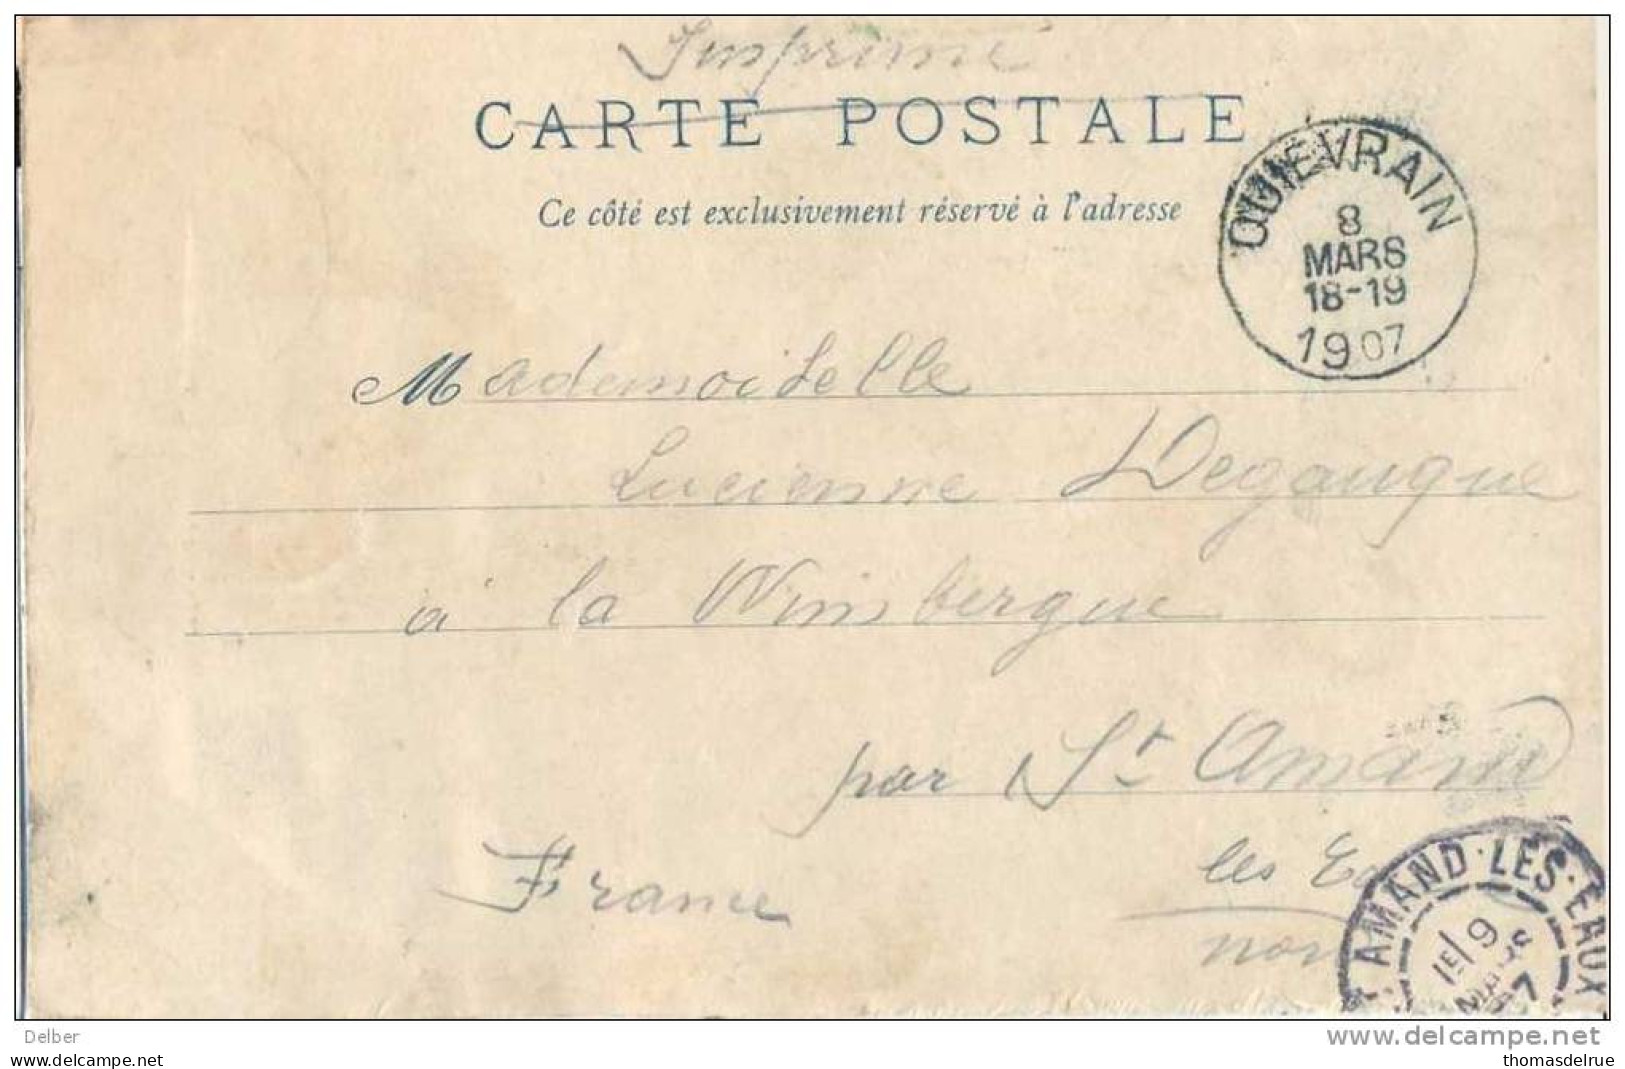 Imprimé
CARTE POSTALE
Ce côté est exclusivement réservé à l'adresse
QUIEVRAIN
8
MARS
18-19
1907
Mademoiselle
Lucienne Degauque
à la Winsbergue
par St Amand
les Ea
nor
France
AMAND·LES·EAUX
1E/9
MARS
07
Delber
delcampe.net
www.delcampe.com
thomasdelrue